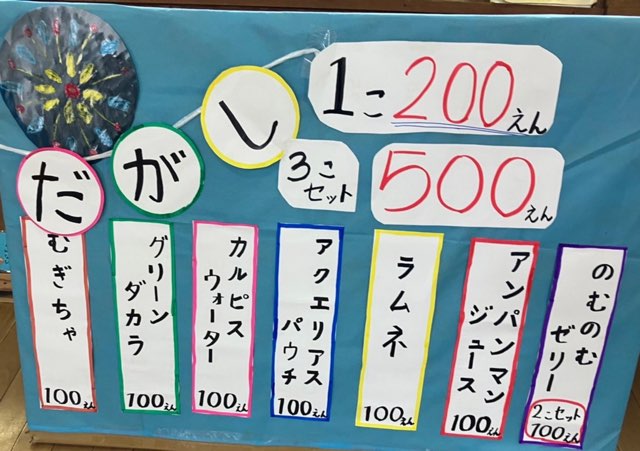 だがし
1こ200えん
3こ
セット
500えん
むぎちゃ
100えん
グリーン
ダカラ
100えん
カルピス
ウォーター
100えん
アクエリアス
パウチ
100えん
ラムネ
100えん
アンパンマン
ジュース
100えん
のむのむ
ゼリー
2こセット
100えん